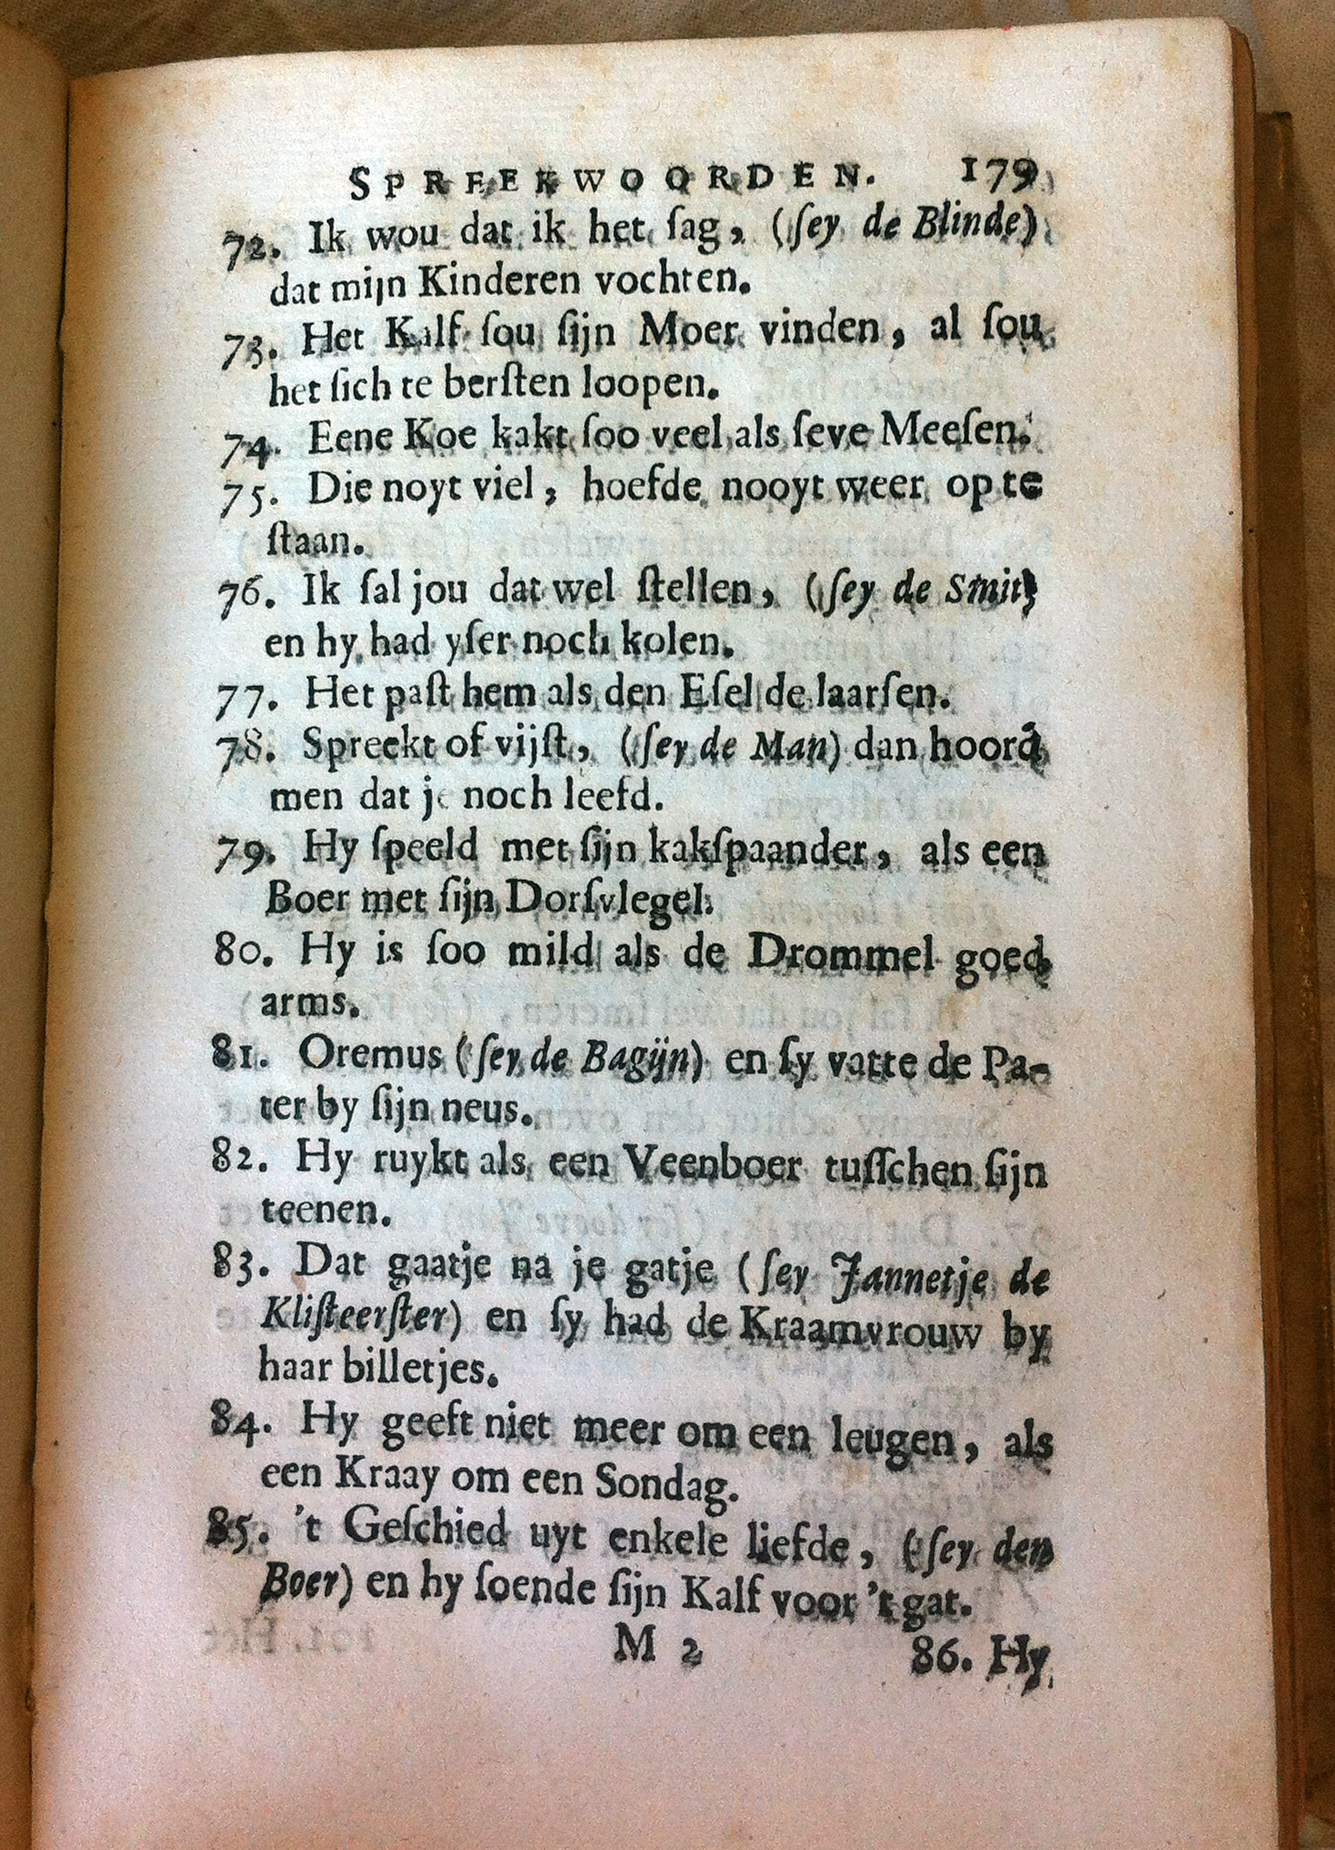 SPREEKWOORDEN. 179
72. Ik wou dat ik het ſag, (ſey de Blinde)
dat mijn Kinderen vochten.
73. Het Kalf ſou ſijn Moer vinden, al ſou
het ſich te berſten loopen.
74. Eene Koe kakt ſoo veel als ſeve Meeſen.
75. Die noyt viel, hoefde nooyt weer op te
ſtaan.
76. Ik ſal jou dat wel ſtellen, (ſey de Smit)
en hy had yſer noch kolen.
77. Het paſt hem als den Eſel de laarſen.
78. Spreekt of vijſt, (ſey de Man) dan hoord
men dat je noch leefd.
79. Hy ſpeeld met ſijn kakſpaander, als een
Boer met ſijn Dorſvlegel.
80. Hy is ſoo mild als de Drommel goed
arms.
81. Oremus (ſey de Bagijn) en ſy vatte de Pa-
ter by ſijn neus.
82. Hy ruykt als een Veenboer tuſſchen ſijn
teenen.
83. Dat gaatje na je gatje (ſey Jannetje de
Kliſteerſter) en ſy had de Kraamvrouw by
haar billetjes.
84. Hy geeft niet meer om een leugen, als
een Kraay om een Sondag.
85. 't Geſchied uyt enkele liefde, (ſey den
Boer) en hy ſoende ſijn Kalf voor 't gat.
M 2 86. Hy